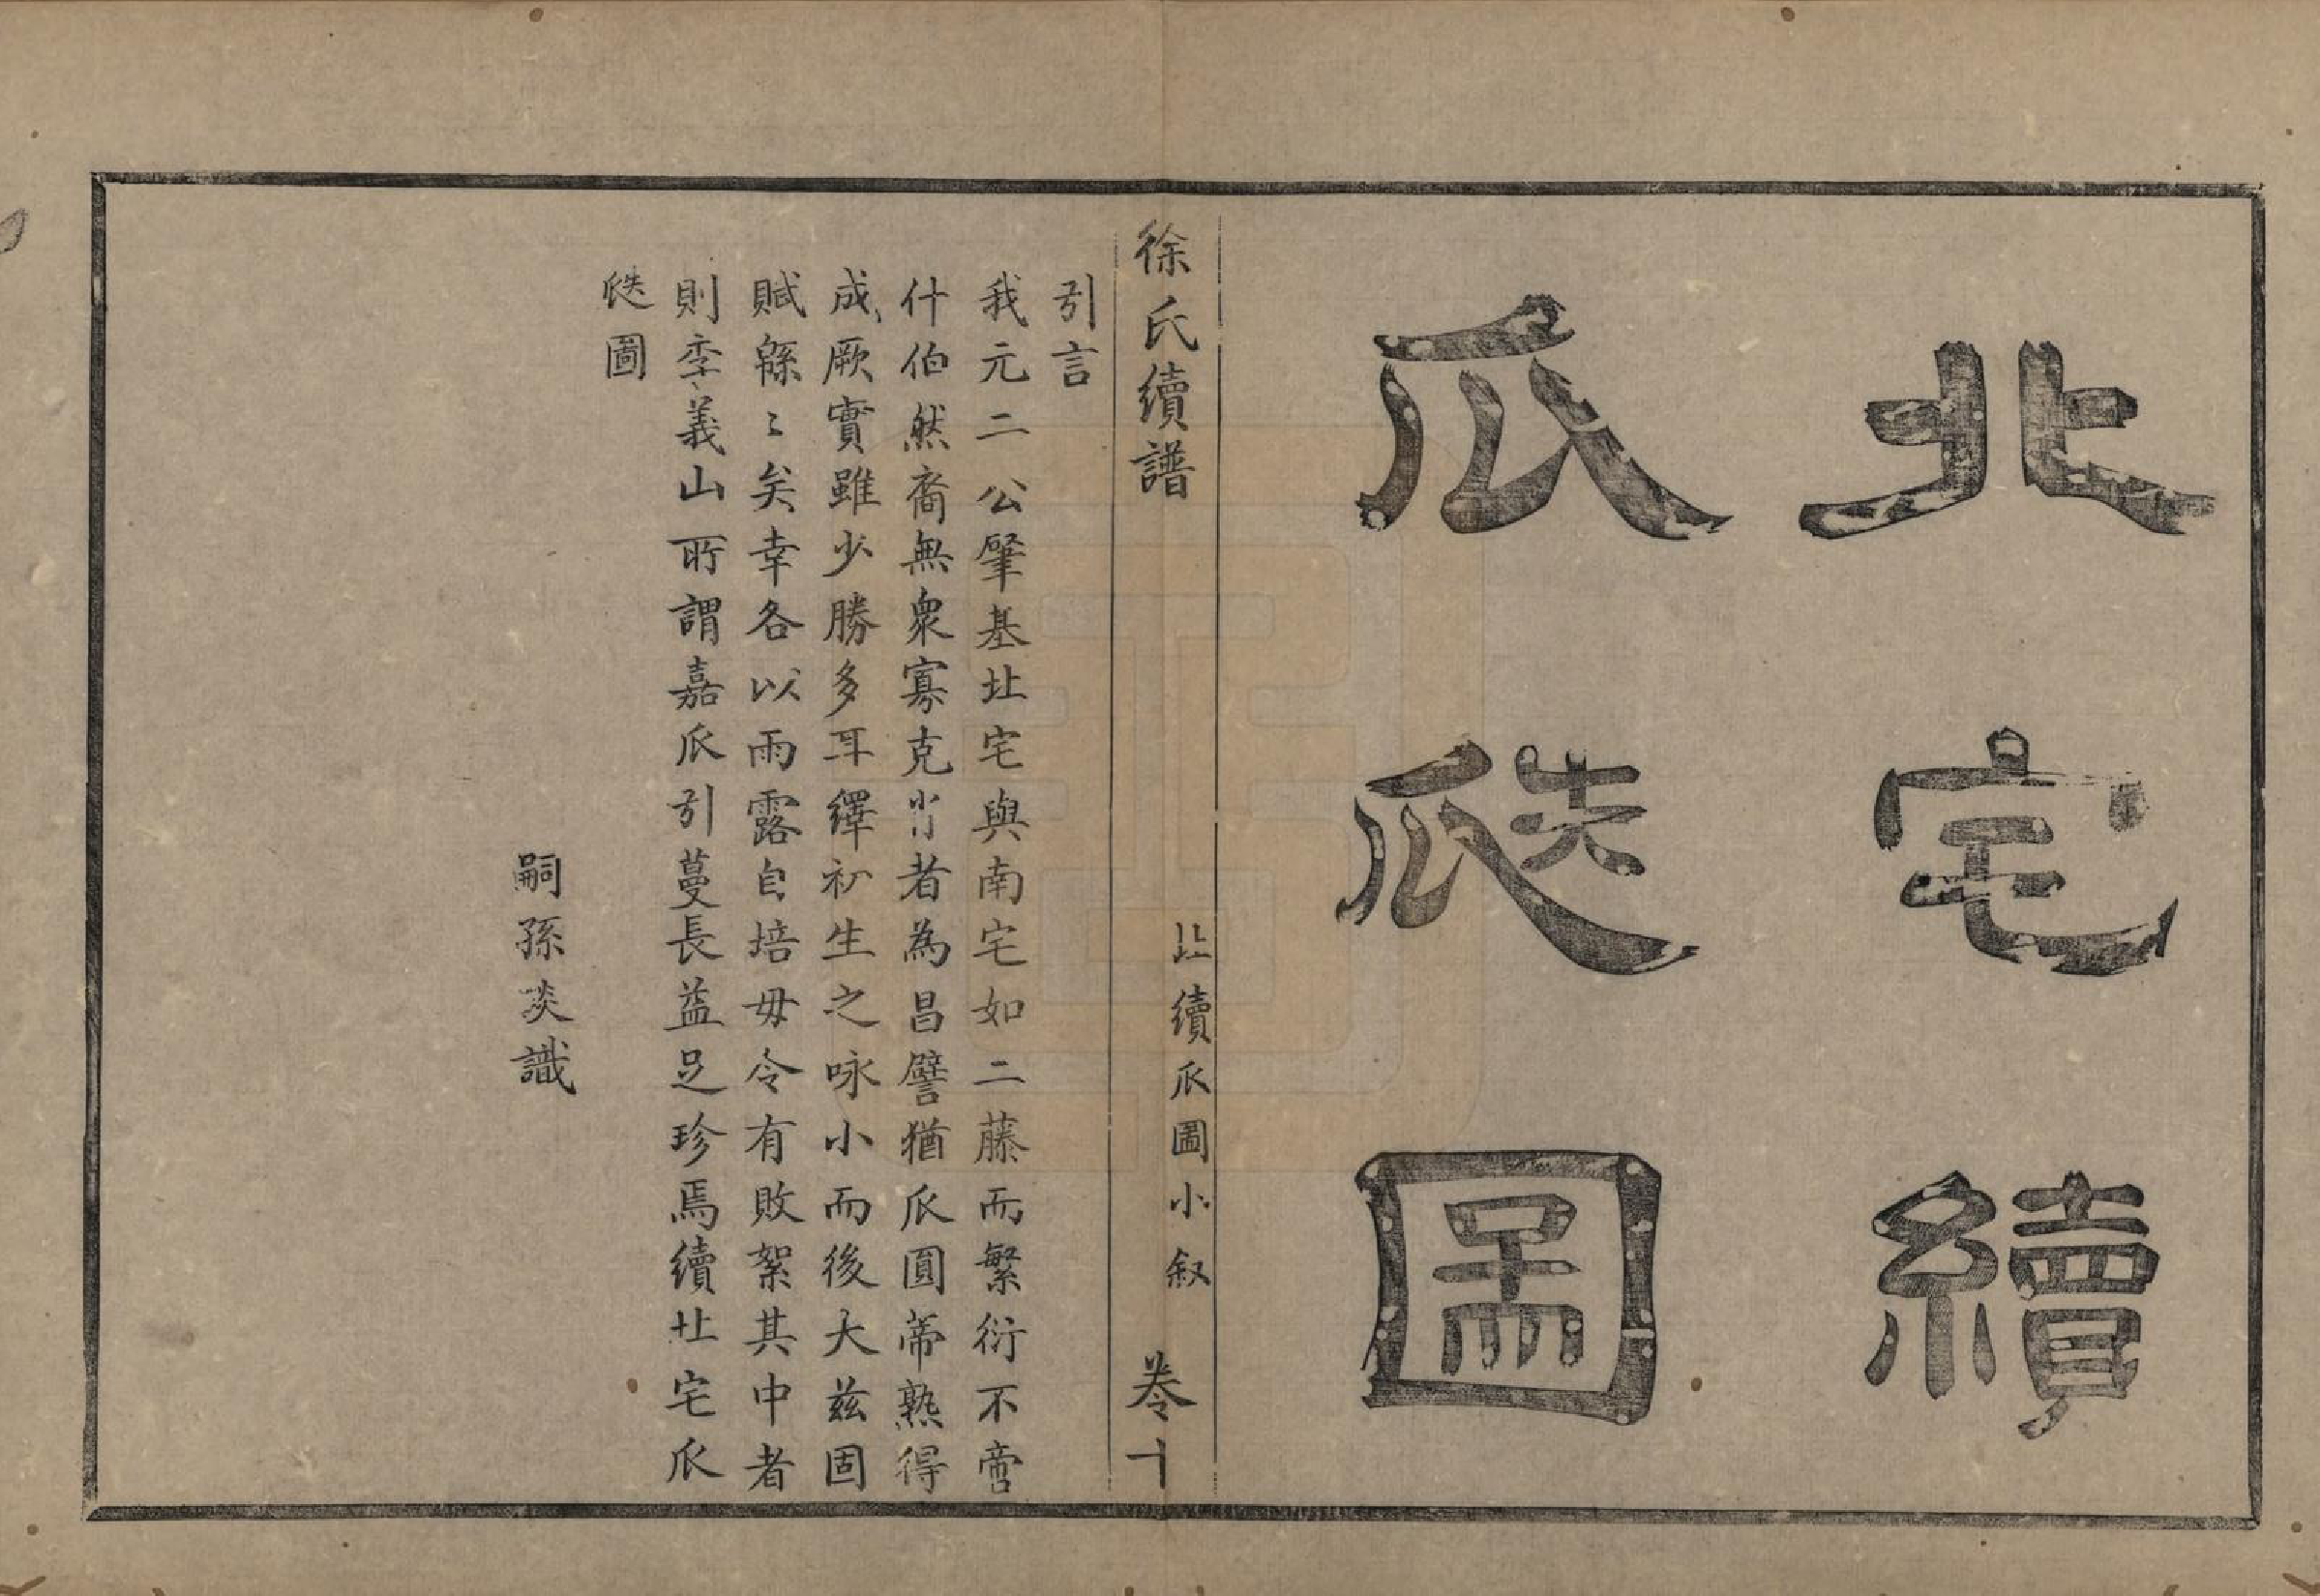 北宅續
瓜瓞圖
徐氏續譜
北續瓜圖小叙
卷十
引言
我元二公肇基北宅與南宅如二藤而繁衍不啻
什伯然裔無衆寡克肖者為昌譬猶瓜圓蒂熟得
成厥實雖少勝多耳繹初生之咏小而後大兹固
賦緜〻矣幸各以雨露自培毋令有敗絮其中者
則李義山所謂嘉瓜引蔓長益足珍焉續北宅瓜
瓞圖
嗣孫炎識